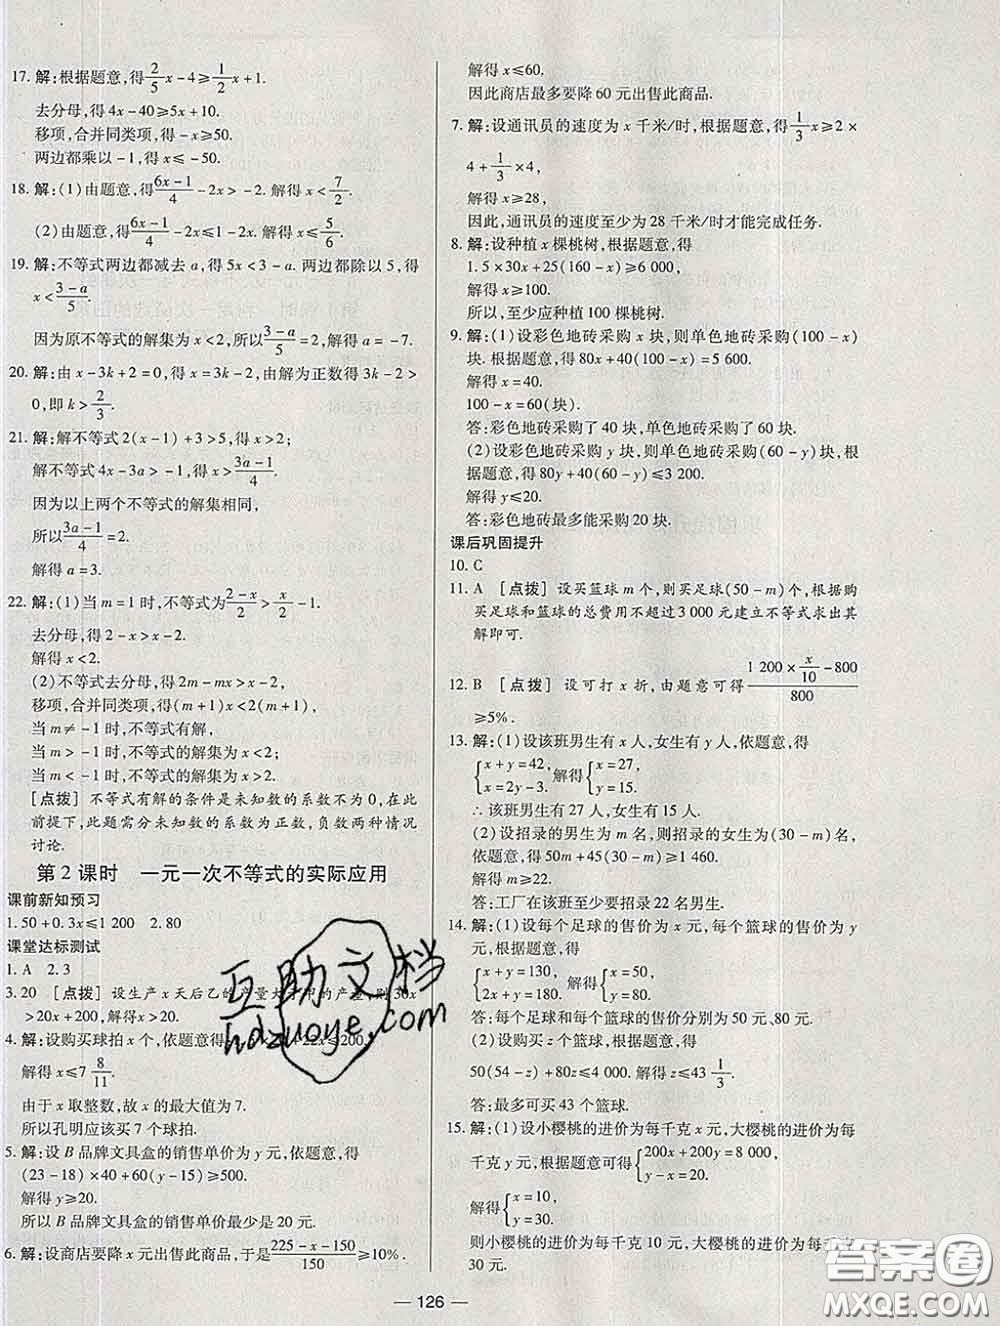 17. 解:根据题意,得2/5x-4≥1/2x+1.
去分母,得4x-40≥5x+10.
移项,合并同类项,得-x≥50.
两边都乘以-1,得x≤-50.
18. 解:(1)由题意,得(6x-1)/4-2x>-2. 解得x<7/2.
(2)由题意,得(6x-1)/4-2x≤1-2x. 解得x≤5/6.
19. 解:不等式两边都减去a,得5x<3-a. 两边都除以5,得
x<(3-a)/5.
因为原不等式的解集为x<2,所以(3-a)/5=2,解得a=-7.
20. 解:由x-3k+2=0,得x=3k-2,由解为正数得3k-2>
0,即k>2/3.
21. 解:解不等式2(x-1)+3>5,得x>2;
解不等式4x-3a>-1,得x>(3a-1)/4.
因为以上两个不等式的解集相同,
所以(3a-1)/4=2.
解得a=3.
22. 解:(1)当m=1时,不等式为(2-x)/2>x/2-1.
去分母,得2-x>x-2.
解得x<2.
(2)不等式去分母,得2m-mx>x-2,
移项,合并同类项,得(m+1)x<2(m+1),
当m≠-1时,不等式有解,
当m>-1时,不等式的解集为x<2;
当m<-1时,不等式的解集为x>2.
[点拨] 不等式有解的条件是未知数的系数不为0,在此
前提下,此题需分未知数的系数为正数,负数两种情况
讨论.
第2课时 一元一次不等式的实际应用
课前新知预习
1.50+0.3x≤1 200 2.80
课堂达标测试
1. A 2.3
3.20 [点拨] 设生产x天后乙的产量大于甲的产量,则30x
>20x+200,解得x>20.
4. 解:设购买球拍x个,依题意得 +22x≤200.
解得x≤7 8/11.
由于x取整数,故x的最大值为7.
所以孔明应该买7个球拍.
5. 解:设B品牌文具盒的销售单价为y元,依题意,得
(23-18)×40+60(y-15)≥500.
解得y≥20.
所以B品牌文具盒的销售单价最少是20元.
6. 解:设商店要降x元出售此商品,于是(225-x-150)/150≥10%.
解得x≤60.
因此商店最多要降60元出售此商品.
7. 解:设通讯员的速度为x千米/时,根据题意,得1/3x≥2×
4+1/3×4,
解得x≥28,
因此,通讯员的速度至少为28千米/时才能完成任务.
8. 解:设种植x棵桃树,根据题意,得
1.5×30x+25(160-x)≥6 000,
解得x≥100.
所以,至少应种植100棵桃树.
9. 解:(1)设彩色地砖采购x块,则单色地砖采购(100-x)
块. 根据题意,得80x+40(100-x)=5 600.
解得x=40.
100-x=60(块).
答:彩色地砖采购了40块,单色地砖采购了60块.
(2)设彩色地砖采购y块,则单色地砖采购(60-y)块,根
据题意,得80y+40(60-y)≤3 200.
解得y≤20.
答:彩色地砖最多能采购20块.
课后巩固提升
10. C
11. A [点拨] 设买篮球m个,则买足球(50-m)个,根据购
买足球和篮球的总费用不超过3 000元建立不等式求出其
解即可.
12. B [点拨] 设可打x折,由题意可得(1 200×x/10-800)/800
≥5%.
13. 解:(1)设该班男生有x人,女生有y人,依题意,得
{x+y=42, x=2y-3. 解得{x=27, y=15.
∴该班男生有27人,女生有15人.
(2)设招录的男生为m名,则招录的女生为(30-m)名,
依题意,得50m+45(30-m)≥1 460,
解得m≥22.
答:工厂在该班至少要招录22名男生.
14. 解:(1)设每个足球的售价为x元,每个篮球的售价为y
元,根据题意,得
{x+y=130, 2x+y=180, 解得{x=50, y=80.
答:每个足球和每个篮球的售价分别为50元、80元.
(2)设购买z个篮球,根据题意,得
50(54-z)+80z≤4 000,解得z≤43 1/3.
答:最多可买43个篮球.
15. 解:(1)设小樱桃的进价为每千克x元,大樱桃的进价为每
千克y元,根据题意可得{200x+200y=8 000, y-x=20,
解得{x=10, y=30.
则小樱桃的进价为每千克10元,大樱桃的进价为每千克
30元.
互助文档
hdzuoye.com
答案圈
MXQE.COM
— 126 —